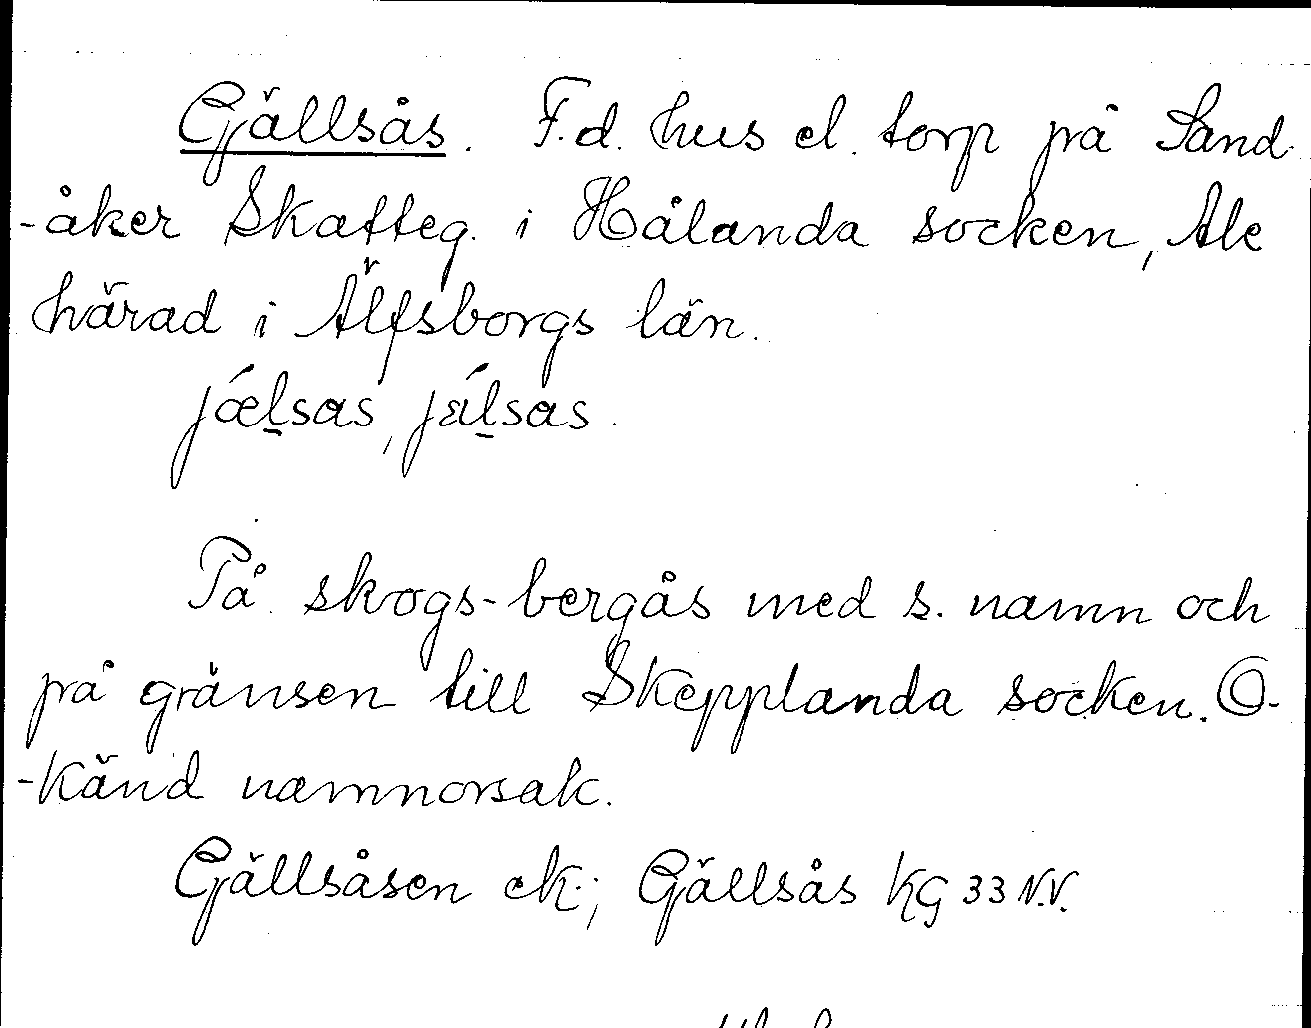 Gjällsås. F.d. hus el. torp på Sand-
-åker Skatteg. i Hålanda socken, Ale
härad i Älfsborgs län.
jǽlsas, jälsas.
På skogs-bergås med s. namn och
på gränsen till Skepplanda socken. O-
-känd namnorsak.
Gjällsåsen ek.; Gjällsås KG 33 N.V.